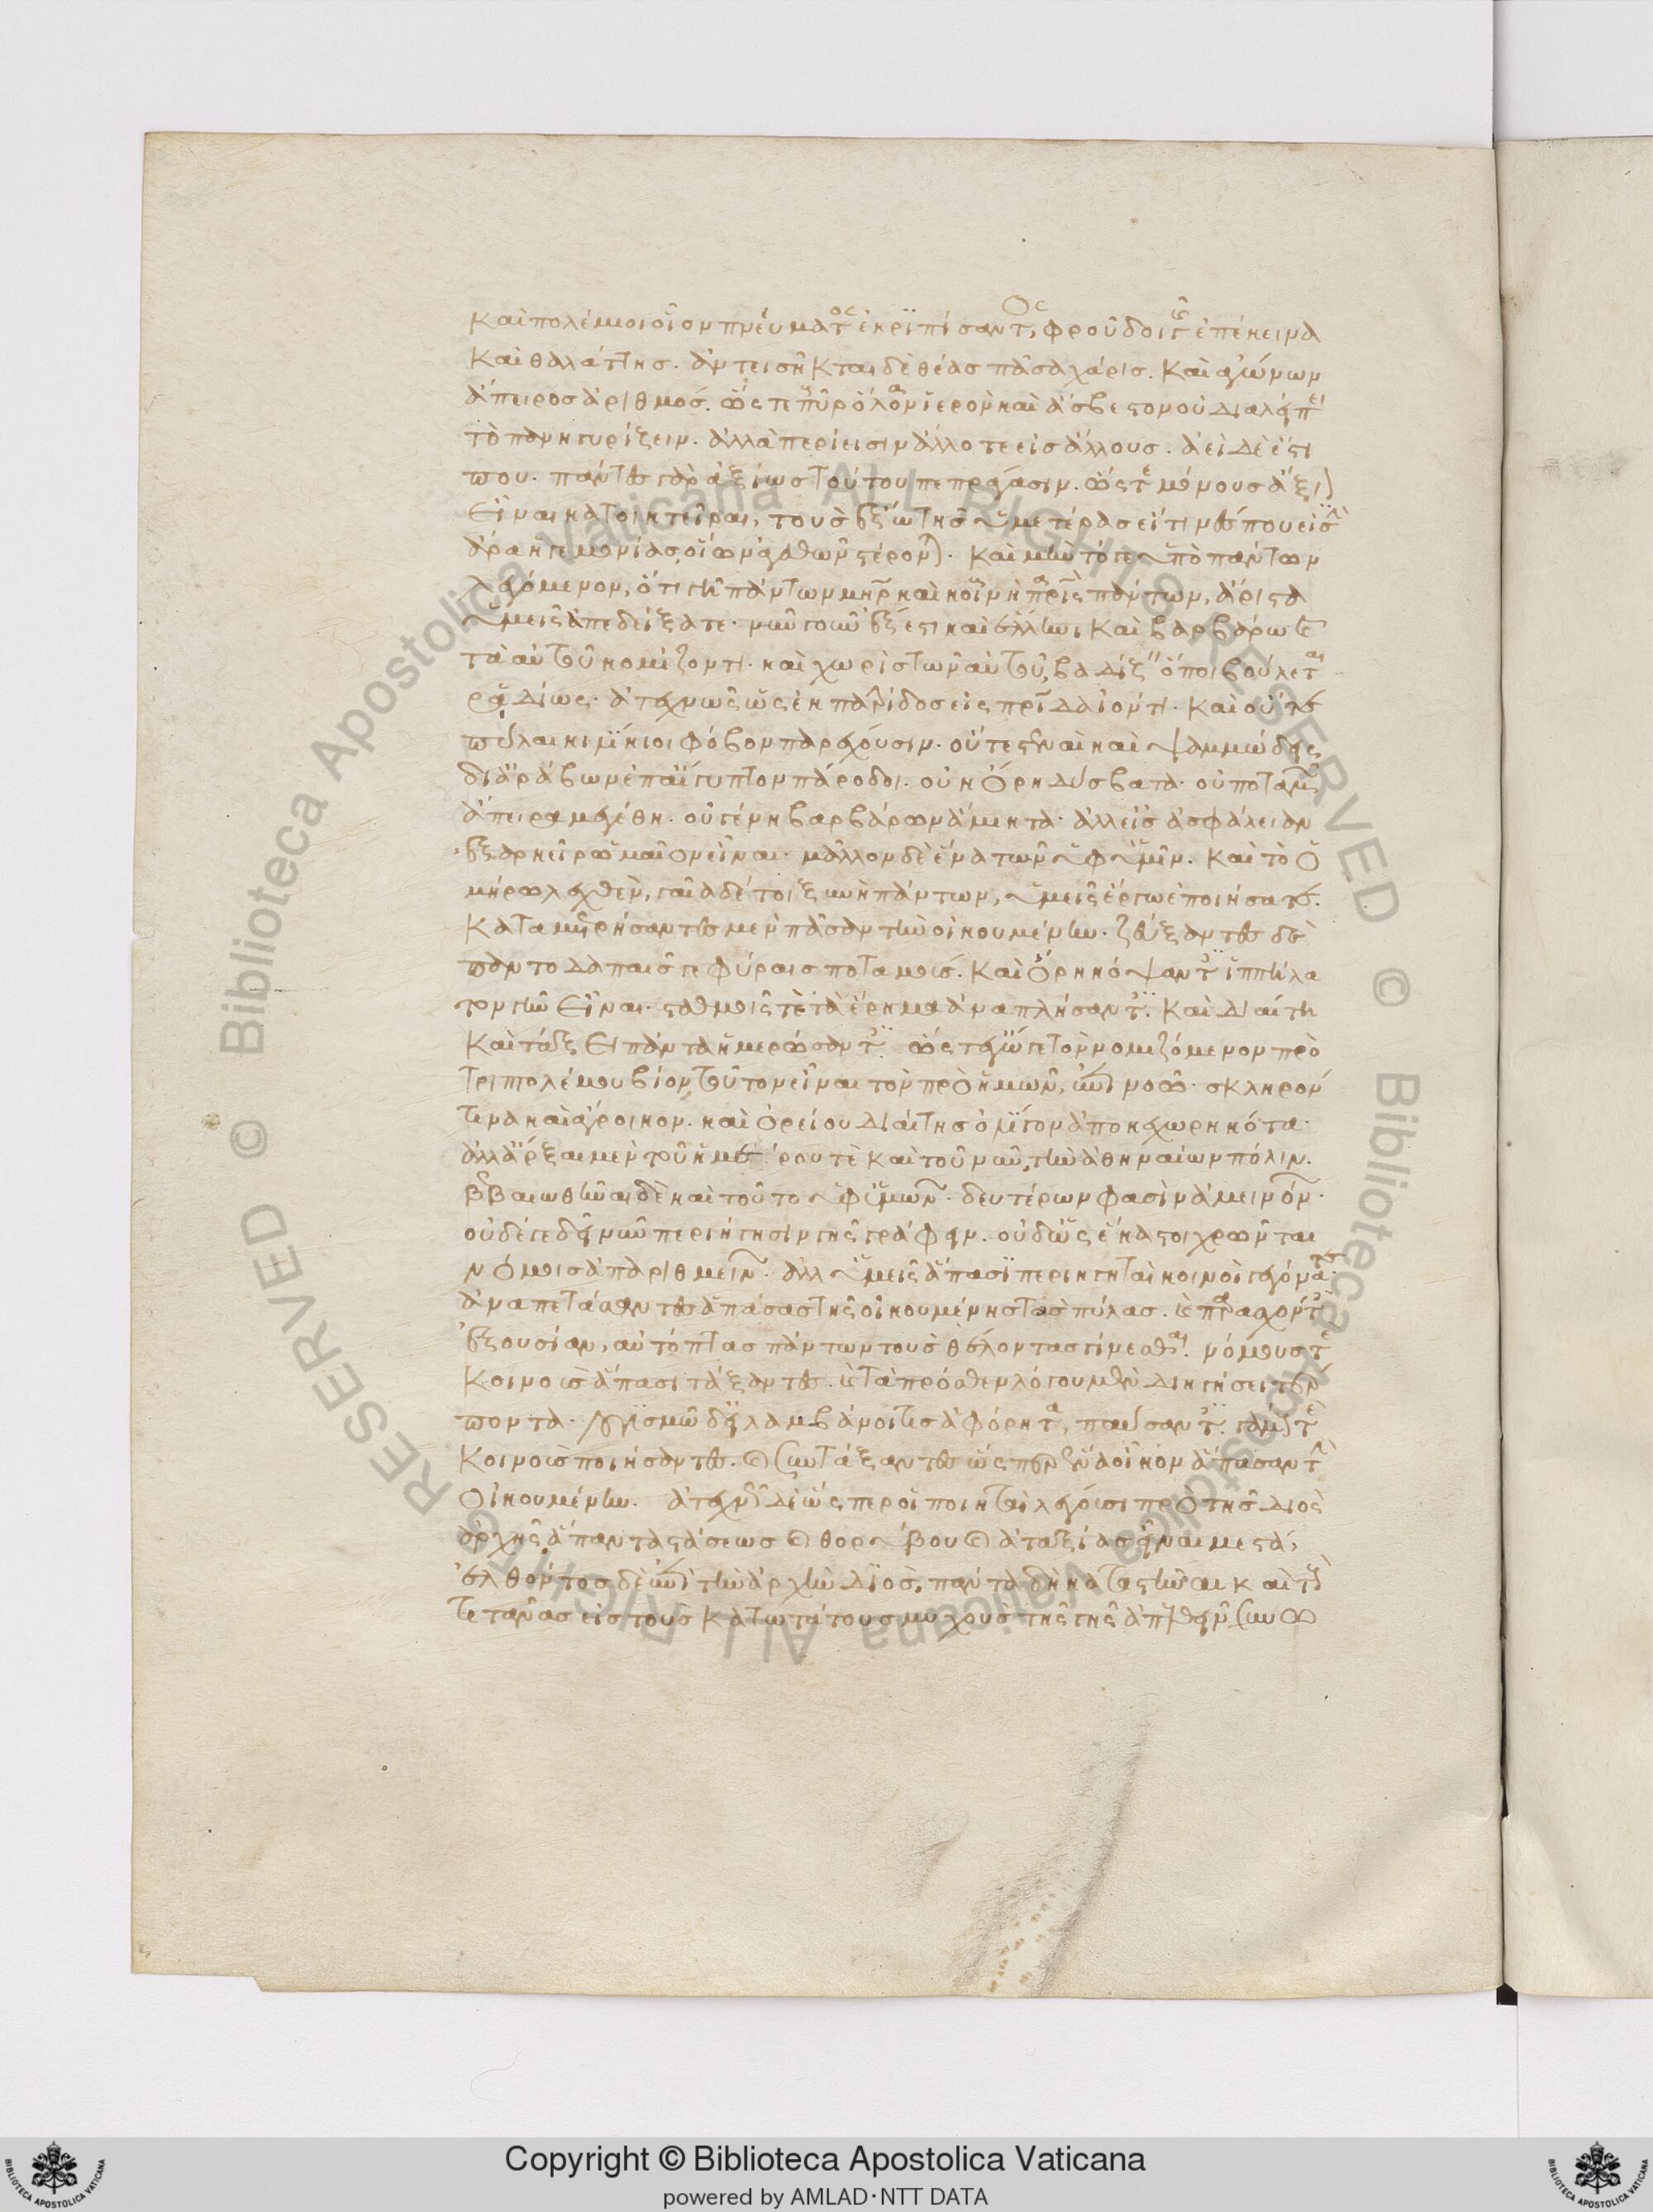 καὶ πόλεμοι οἷον πνεύματος ἐκριπίσαντος, φροῦδοι γῆς ἐπέκεινα
καὶ θαλάττης. ἀντεισῆκται δὲ θέας πᾶσα χάρις. καὶ ἀγώνων
ἄπειρος ἀριθμός. ὥστε πῦρ ὅλον ἱερὸν καὶ ἄσβεστον οὐ διαλείπει
τὸ πανηγυρίζειν. ἀλλὰ περίεισιν ἄλλοτε εἰς ἄλλους. ἀεὶ δὲ ἔστι
που. πάντες γὰρ ἀξίως τούτου πεπράγασιν. ὥστε μόνους ἄξιον
εἶναι κατοικτεῖραι, τοὺς ἔξω τῆς ὑμετέρας εἴ τινές που εἰσὶν
ἄρα ἡγεμονίας, οἵων ἀγαθῶν στέρονται. καὶ μὴν τό γε ὑπὸ πάντων
λεγόμενον, ὅτι γῆ πάντων μήτηρ καὶ κοινὴ πατρὶς πάντων, ἄριστα
ὑμεῖς ἀπεδείξατε. νῦν γοῦν ἔξεστι καὶ ἕλληνι καὶ βαρβάρω καὶ
τὰ αὑτοῦ κομίζοντι. καὶ χωρὶς τῶν αὑτοῦ, βαδίζειν ὅποι βούλεται
ῥαδίως. ἀτεχνῶς ὡς ἐκ πατρίδος εἰς πατρίδα ἰόντι. καὶ οὔτε
πύλαι κιλίκιοι φόβον παρέχουσιν. οὔτε στεναὶ καὶ ψαμμώδεις
δι ἀράβων ἐπ αἴγυπτον πάροδοι. οὐκ ὄρη δύσβατα. οὐ ποταμῶν
ἄπειρα μεγέθη. οὐ γένη βαρβάρων ἄμικτα. ἀλλ εἰς ἀσφάλειαν
ἐξαρκεῖ ῥωμαῖον εἶναι. μᾶλλον δὲ ἕνα τῶν ὑφ ὑμῖν. καὶ τὸ ὁ
μήρω λεχθὲν, γαῖα δέ τοι ξυνὴ πάντων, ὑμεῖς ἔργω ἐποιήσατε.
καταμετρήσαντες μὲν πᾶσαν τὴν οἰκουμένην. ζεύξαντες δὲ
παντοδαπαῖς γεφύραις ποταμούς. καὶ ὄρη κόψαντες ἱππήλα
τον γῆν εἶναι. σταθμοῖς τὲ τὰ ἔρημα ἀναπλήσαντες. καὶ διαίτη
καὶ τάξει πάντα ἡμερώσαντες. ὥστ ἔγωγε τὸν νομιζόμενον πρὸ
τριπτολέμου βίον, τοῦτον εἶναι τὸν πρὸ ἡμῶν, ἐπινοῶ. σκληρόν
τινα καὶ ἄγροικον. καὶ ὀρείου διαίτης ὀλίγον ἀποκεχωρηκότα.
ἀλλ ἄρξαι μὲν τοῦ ἡμέρου τὲ καὶ τοῦ νῦν, τὴν ἀθηναίων πόλιν.
βεβαιωθῆναι δὲ καὶ τοῦτο ὑφ ὑμῶν. δευτέρων φασὶν ἀμεινόνων.
οὐδέ γε δεῖ νῦν περιήγησιν γῆς γράφειν. οὐδ ὡς ἕκαστοι χρῶνται
νόμοις ἀπαριθμεῖν. ἀλλ ὑμεῖς ἅπασι περιηγηταὶ κοινοὶ γεγόνατε.
ἀναπετάσαντες ἁπάσας τῆς οἰκουμένης τὰς πύλας. καὶ παρασχόντες
ἐξουσίαν, αὐτόπτας πάντων τοὺς θέλοντας γίνεσθαι. νόμους τε
κοινοὺς ἅπασι τάξαντες. καὶ τὰ πρόσθεν λόγου μὲν διηγήσει τέρ
ποντα. λογισμῶ δὲ εἰ λαμβάνοι τις ἀφόρητα, παύσαντες. γάμους τε
κοινοὺς ποιήσαντες. καὶ συντάξαντες ὥσπερ ἕνα οἶκον ἅπασαν τὴν
οἰκουμένην. ἀτεχνῶς δὲ ὥσπερ οἱ ποιηταὶ λέγουσι πρὸ τῆς διὸς
ἀρχῆς ἅπαντα στάσεως καὶ θορύβου καὶ ἀταξίας εἶναι μεστά,
ἐλθόντος δὲ ἐπὶ τὴν ἀρχὴν διὸς, πάντα δὴ καταστῆναι καὶ τοὺς
τιτᾶνας εἰς τοὺς κατωτάτους μυχοὺς τῆς γῆς ἀπελθεῖν συνω
Copyright © Biblioteca Apostolica Vaticana
powered by AMLAD·NTT DATA
© Biblioteca Apostolica Vaticana ALL RIGHTS RESERVED © Biblioteca Apostolica Vaticana ALL RIGHTS RESERVED
BIBLIOTECA APOSTOLICA VATICANA
BIBLIOTECA APOSTOLICA VATICANA